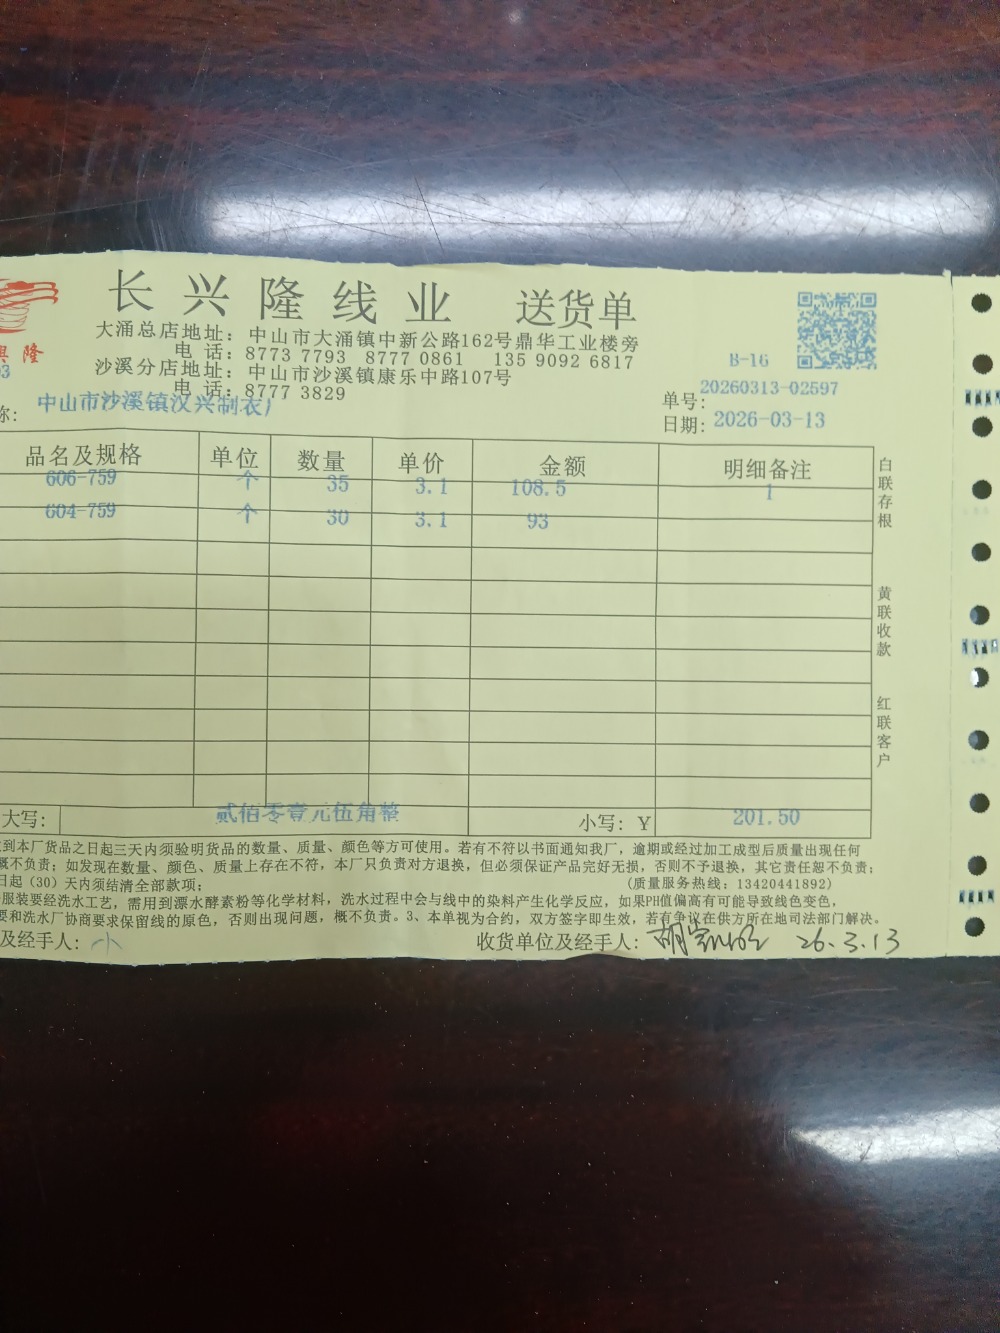 长兴隆线业 送货单
大涌总店地址：中山市大涌镇中新公路162号鼎华工业楼旁
电 话：8773 7793 8777 0861 135 9092 6817
沙溪分店地址：中山市沙溪镇康乐中路107号
电 话：8777 3829
隆
B-16
单号：20260313-02597
日期：2026-03-13
称：中山市沙溪镇汉兴制衣厂
品名及规格 单位 数量 单价 金额 明细备注
606-759 个 35 3.1 108.5 1
604-759 个 30 3.1 93
白联存根
黄联收款
红联客户
大写： 贰佰零壹元伍角整 小写：￥ 201.50
到本厂货品之日起三天内须验明货品的数量、质量、颜色等方可使用。若有不符以书面通知我厂，逾期或经过加工成型后质量出现任何
概不负责；如发现在数量、颜色、质量上存在不符，本厂只负责对方退换，但必须保证产品完好无损，否则不予退换，其它责任恕不负责；
日起（30）天内须结清全部款项； （质量服务热线：13420441892）
服装要经洗水工艺，需用到漂水酵素粉等化学材料，洗水过程中会与线中的染料产生化学反应，如果PH值偏高有可能导致线色变色，
要和洗水厂协商要求保留线的原色，否则出现问题，概不负责。3、本单视为合约，双方签字即生效，若有争议在供方所在地司法部门解决。
及经手人：小 收货单位及经手人： 26.3.13